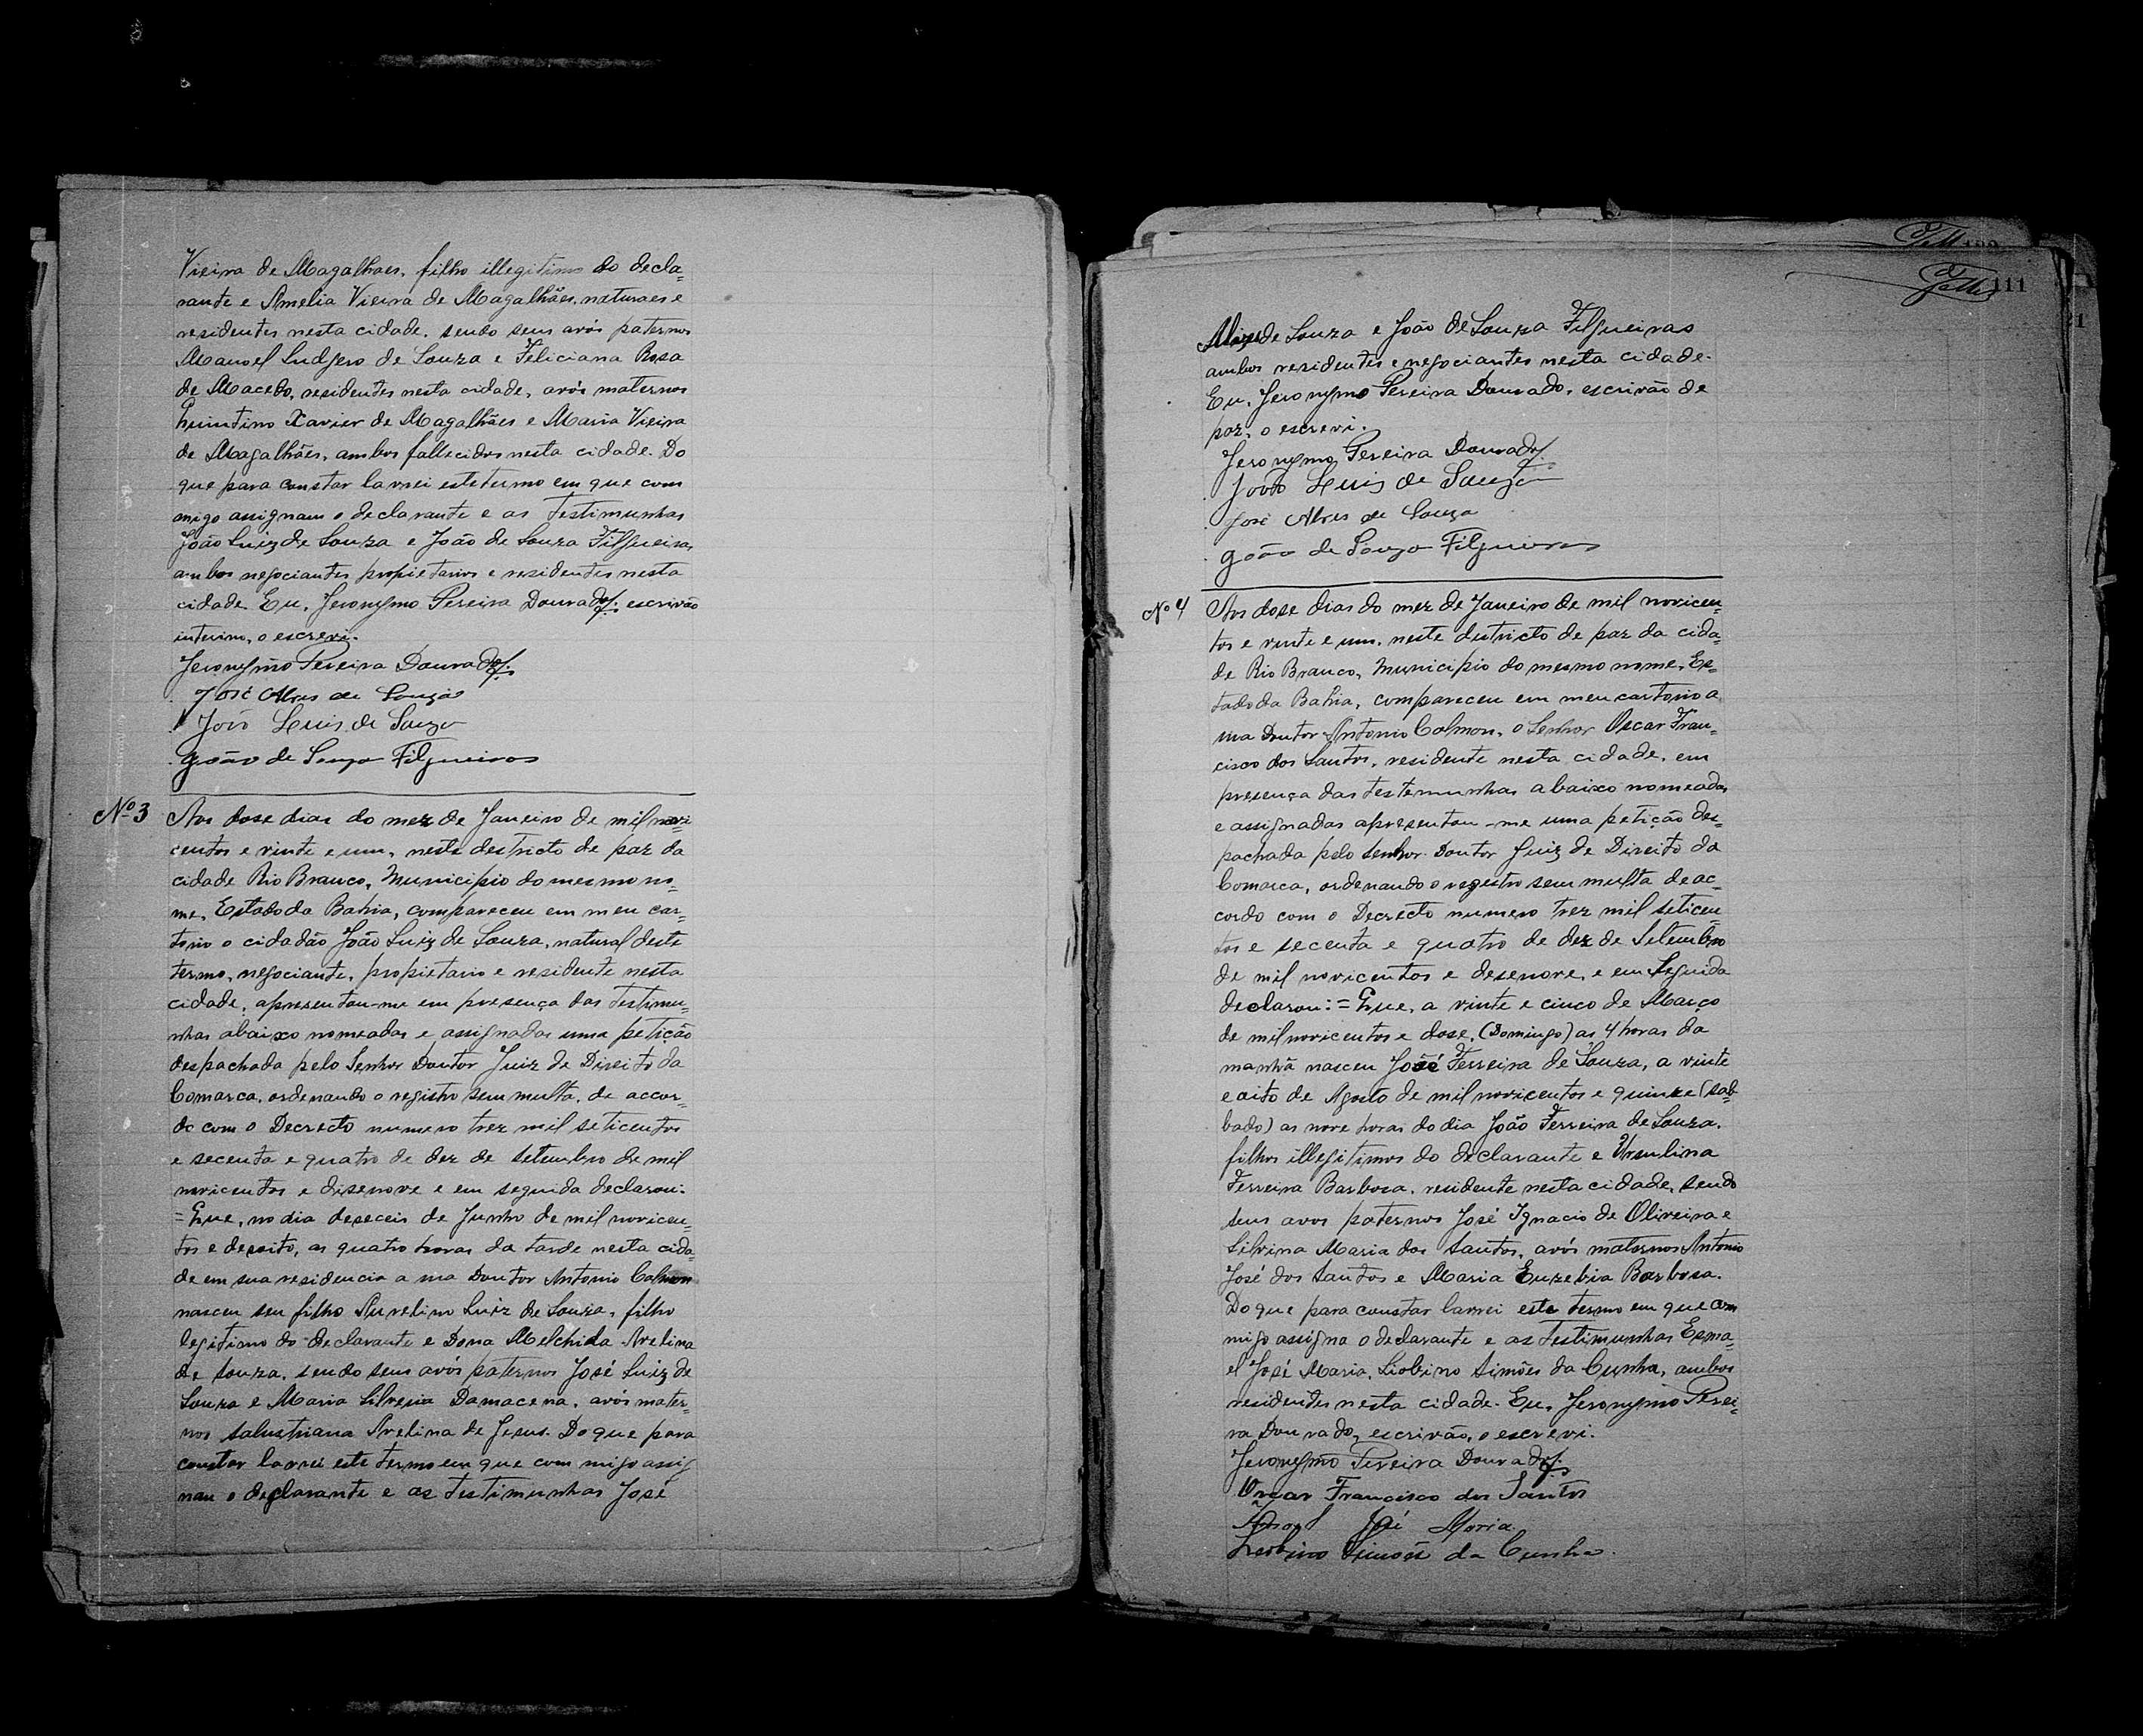 Vieira de Magalhaes, filho illegitimo do decla=
rante e Amelia Vieira de Magalhães, naturaes e
residentes nesta cidade, sendo seus avós paternos
Manoel Ludgero de Souza e Feliciana Rosa
de Macedo, residentes nesta cidade, avós maternos
Quintino Xavier de Magalhães e Maria Vieira
de Magalhães, ambos fallecidos nesta cidade. Do
que para constar lavrei este termo em que com
migo assignam o declarante e as testimunhas
João Luiz de Souza e João de Souza Filgueiras
ambos negociantes propietarios e residentes nesta
cidade Eu, Jeronymo Pereira Dourado, escrivão
interino, o escrevi.
Jeronymo Pereira Dourado
José Alves de Souza
João Luis de Souza
João de Souza Filgueiras
Nº 3 Aos dose dias do mez de Janeiro de mil novi
centos e vinte e um, neste destricto de paz da
cidade Rio Branco, Municipio do mesmo no=
me, Estado da Bahia, compareceu em meu car=
torio o cidadão João Luiz de Souza, natural deste
termo, negociante, propietario e residente nesta
cidade, apresentou-me em presença das testimu=
nhas abaixo nomeadas e assignadas uma petição
despachada pelo Senhor Doutor Juiz de Direito da
Comarca, ordenando o registro sem multa, de accor=
do com o Decrecto numero trez mil seticentos
e secenta e quatro de dez de Setembro de mil
novicentos e disenove e em seguida declarou:
=Que, no dia deseceis de Junho de mil novicen=
tos e desoito, as quatro horas da tarde nesta cida=
de em sua residencia a rua Doutor Antonio Calmon
nasceu seu filho Aurelino Luiz de Souza, filho
legitimo do declarante e Dona Melchida Avelina
de Souza, sendo seus avós paternos José Luiz de
Souza e Maria Silveria Damacena, avós mater=
nos Salustriana Avelina de Jesus. Do que para
constar lavrei este termo em que com migo assig
nau o declarante e as testimunhas José
111
Alves de Souza e João de Souza Filgueiras
ambos residentes e negociantes nesta cidade.
Eu, Jeronymo Pereira Dourado, escrivão de
paz, o escrevi.
Jeronymo Pereira Dourado
João Luis de Souza
José Alves de Souza
João de Souza Filgueiras
Nº 4 Aos dose dias do mez de Janeiro de mil novicen=
tos e vinte e um, neste destricto de paz da cida=
de Rio Branco, Municipio do mesmo nome, Es=
tado da Bahia, compareceu em meu cartorio a
rua Doutor Antonio Calmon, o Senhor Oscar Fran=
cisco dos Santos, residente nesta cidade, em
presença das testemunhas abaixo nomeadas
e assignadas apresentou-me uma petição des=
pachada pelo Senhor Doutor Juiz de Direito da
Comarca, ordenando o registro sem multa de ac=
cordo com o Decrecto numero trez mil seticen=
tos e secenta e quatro de dez de Setembro
de mil novicentos e desenove, e em seguida
declarou:=Que, a vinte e cinco de Março
de mil novicentos e dose, (Domingo) as 4 horas da
manhã nasceu José Ferreira de Souza, a vinte
e oito de Agosto de mil novicentos e quinze (sab=
bado) as nove horas do dia João Ferreira de Souza,
filhos illegitimos do declarante e Ursulina
Ferreira Barbosa, residente nesta cidade, sendo
seus avos paternos José Ignacio de Oliveira e
Silvina Maria dos Santos, avós maternos Antonio
José dos Santos e Maria Euzebia Barbosa.
Do que para constar lavrei este termo em que com
migo assigna o declarante e as testimunhas Esma=
el José Maria, Liobino Simões da Cunha, ambos
residentes nesta cidade. Eu, Jeronymo Perei=
ra Dourado, escrivão, o escrevi.
Jeronymo Pereira Dourado
Oscar Francisco dos Santos
José Maria
Liobino Simões da Cunha